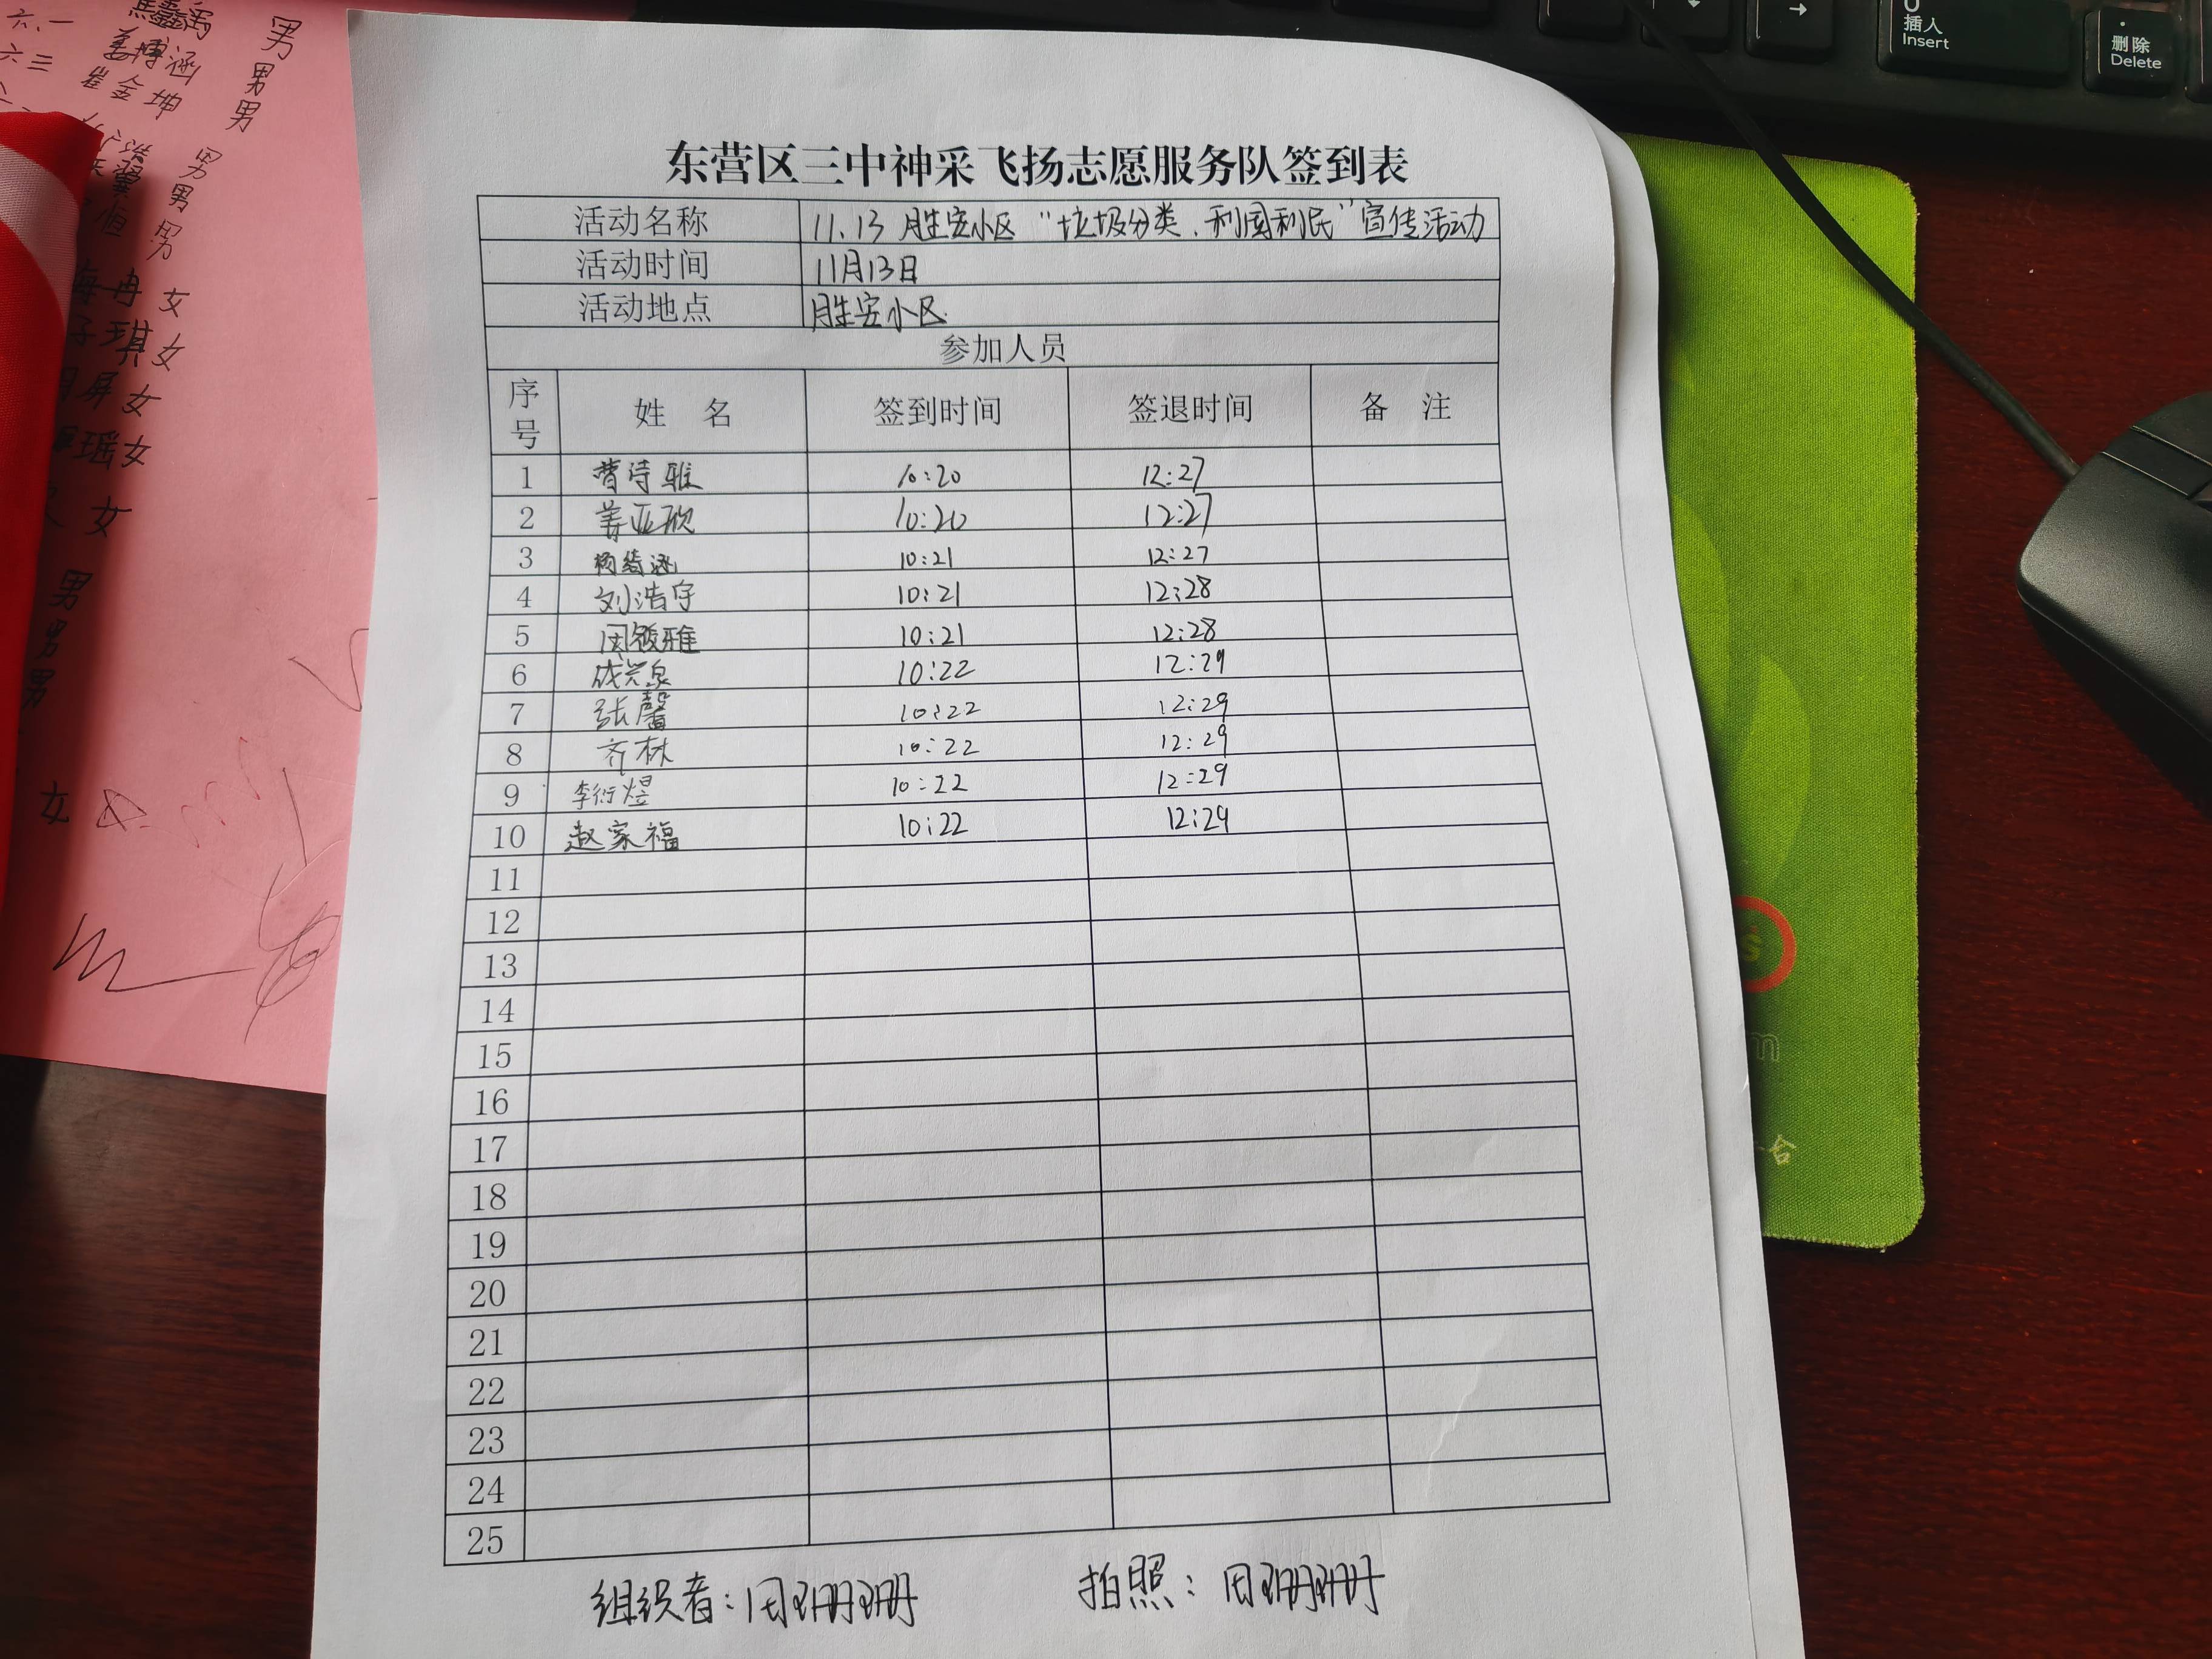 东营区三中神采飞扬志愿服务队签到表
活动名称 11.13 胜安小区 “垃圾分类、利国利民” 宣传活动
活动时间 11月13日
活动地点 胜安小区
参加人员
序号 姓 名 签到时间 签退时间 备 注
1 曹诗雅 10:20 12:27
2 姜亚欣 10:20 12:27
3 杨绮涵 10:21 12:27
4 刘浩宇 10:21 12:28
5 周筱雅 10:21 12:28
6 10:22 12:29
7 张馨 10:22 12:29
8 齐林 10:22 12:29
9 李衍煜 10:22 12:29
10 赵家福 10:22 12:29
11
12
13
14
15
16
17
18
19
20
21
22
23
24
25
组织者：周珊珊 拍照：周珊珊
六.一 男
六三 姜博涵 男
崔金坤 男
浩 男
翼 男
恒 男
冉 女
子琪 女
屏 女
瑶 女
女
男
男
男
女
插入
Insert
删除
Delete
→
s
m
台